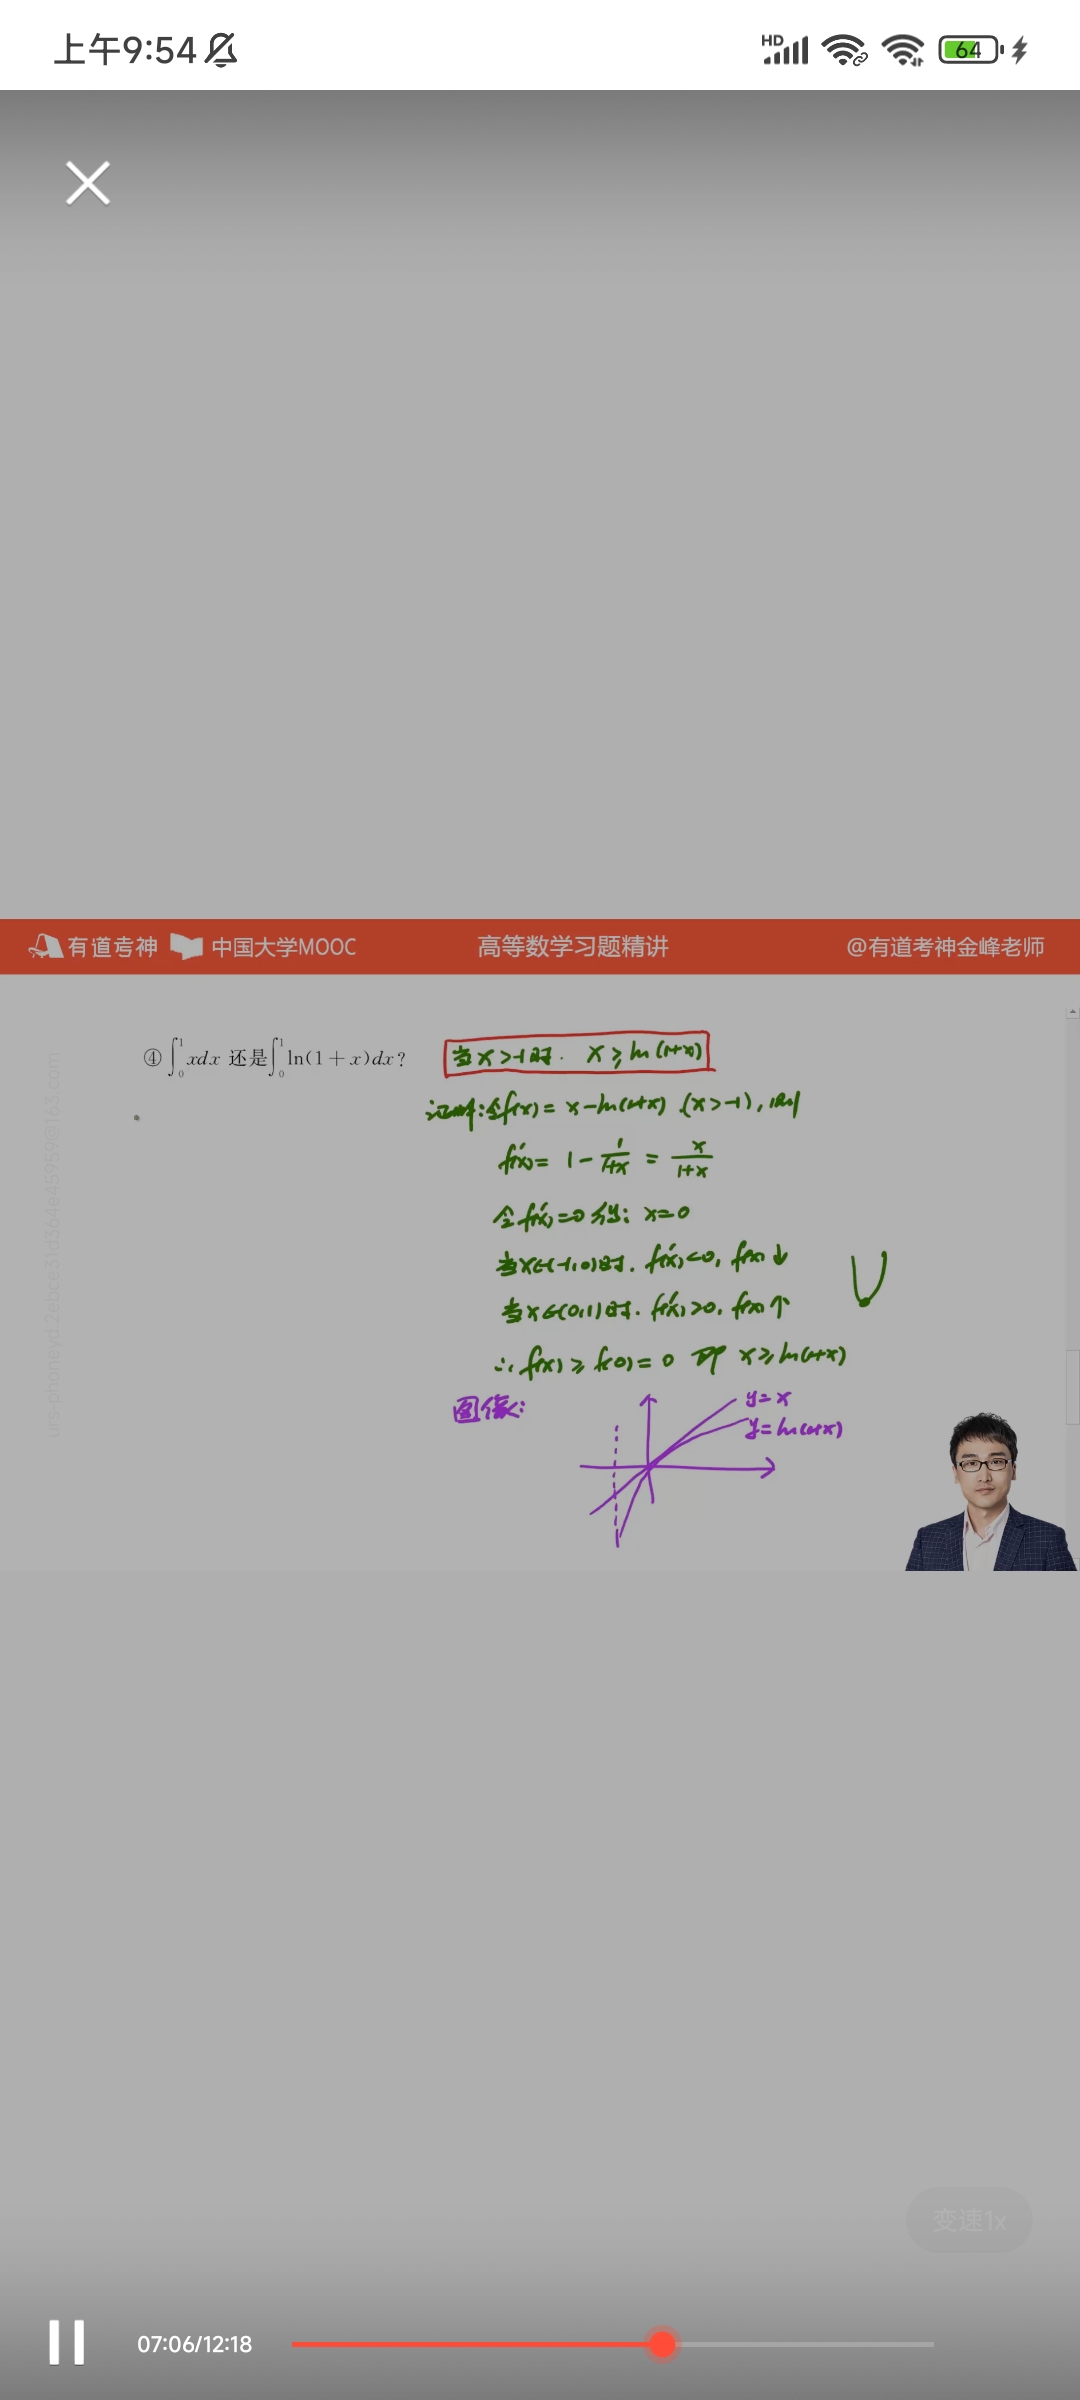 上午9:54
HD
64
有道考神 中国大学MOOC 高等数学习题精讲 @有道考神金峰老师
④ ∫₀¹ xdx 还是 ∫₀¹ ln(1+x)dx?
当 x>-1时. x≥ln(1+x)
证明:令f(x)=x-ln(1+x) (x>-1),则
f'(x)=1-1/(1+x)=x/(1+x)
令f'(x)=0得: x=0
当x∈(-1,0)时. f'(x)<0, f(x)↓
当x∈(0,1)时. f'(x)>0, f(x)↑
∴f(x)≥f(0)=0 即 x≥ln(1+x)
图像:
y=x
y=ln(1+x)
变速1x
07:06/12:18